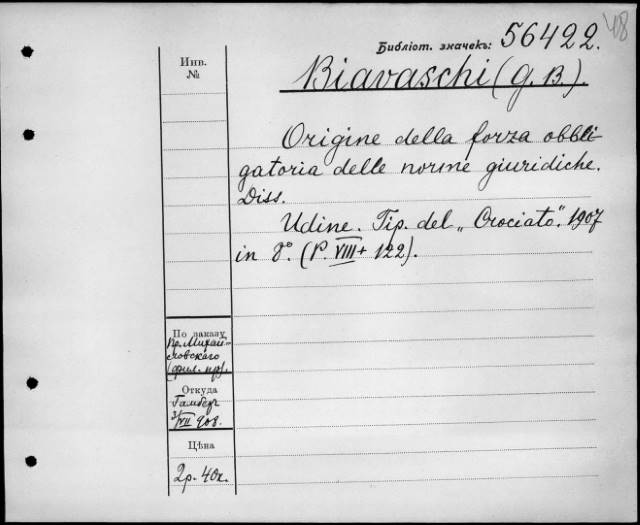 48
Библіот. значекъ: 56422.
Инв.
№
Biavaschi (G. B.).
Origine della forza obbli-
gatoria delle norme giuridiche.
Diss.
Udine. Tip. del „Crociato“. 1907
in 8°. (P. VIII + 122).
По заказу
Пр. Михай-
ловскаго
(фил. пр.).
Откуда
Гамбер
3/VII 908.
Цѣна
2р. 40к.